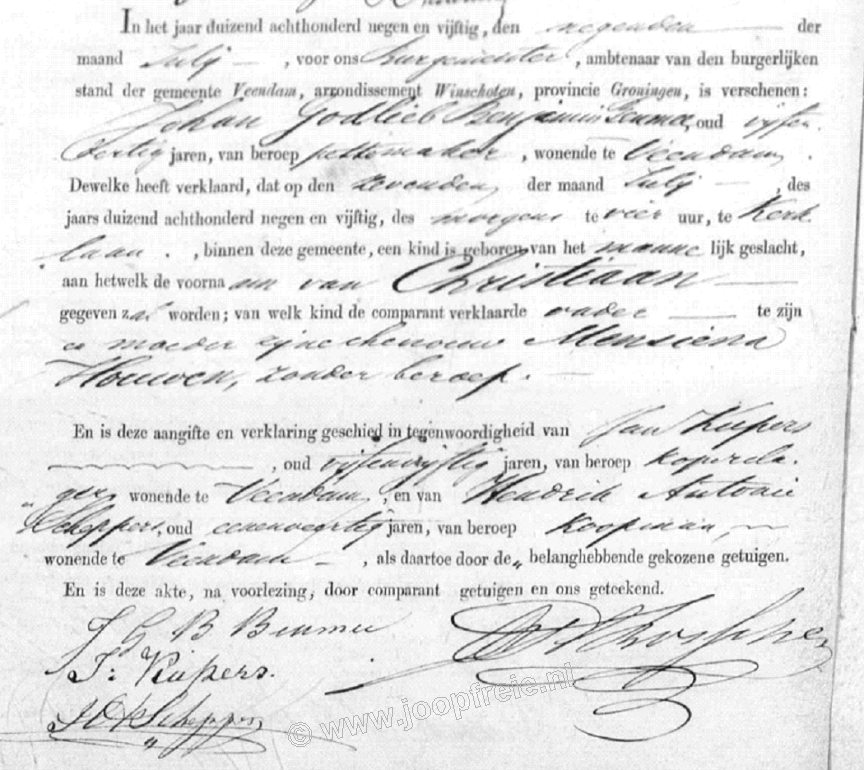 In het jaar duizend achthonderd negen en vijftig, den negenden der
maand Julij, voor ons Burgemeester, ambtenaar van den burgerlijken
stand der gemeente Veendam, arrondissement Winschoten, provincie Groningen, is verschenen:
Johan Godlieb Benjamin Beumee, oud vijfen
dertig jaren, van beroep pettemaker, wonende te Veendam.
Dewelke heeft verklaard, dat op den zevenden der maand Julij, des
jaars duizend achthonderd negen en vijftig, des morgens te vier uur, te Kerk
laan, binnen deze gemeente, een kind is geboren van het mannelijk geslacht,
aan hetwelk de voornaam van Christiaan
gegeven zal worden; van welk kind de comparant verklaarde vader te zijn
en moeder zijne ehevrouw Mensiena
Houwen, zonder beroep.
En is deze aangifte en verklaring geschied in tegenwoordigheid van Jan Kuipers
, oud vijfenvijftig jaren, van beroep kopersla
ger, wonende te Veendam, en van Hendrik Antonie
Scheppers, oud eenenveertig jaren, van beroep koopman,
wonende te Veendam, als daartoe door de „ belanghebbende gekozene getuigen.
En is deze akte, na voorlezing, door comparant getuigen en ons geteekend.
J G B Beumee
J: Kuipers.
Scheppers
© www.joopfreie.nl